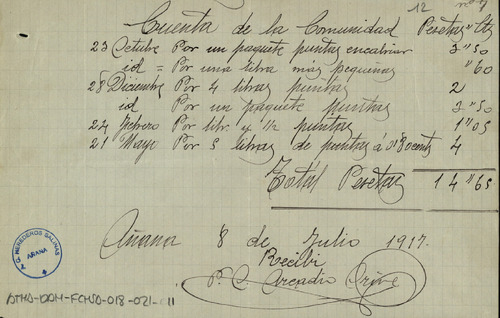 12 nº 7
Cuenta de la Comunidad Pesetas " Cts
23 Octubre Por un paquete puntas encabriar 3 " 50
id = Por una libra mas pequeñas " 60
28 Diciembre Por 4 libras puntas 2
id Por un paquete puntas 3 " 50
24 Febrero Por libr. y 1/2 puntas 1 " 05
21 Mayo Por 5 libras de puntas á 0'80 cents 4
Total Pesetas 14 " 65
Añana 8 de Julio 1917.
Recibi
P. O. Arcadio
HEREDEROS SALINAS
AÑANA
ATHA-DAH-FCHSA-018-021-11